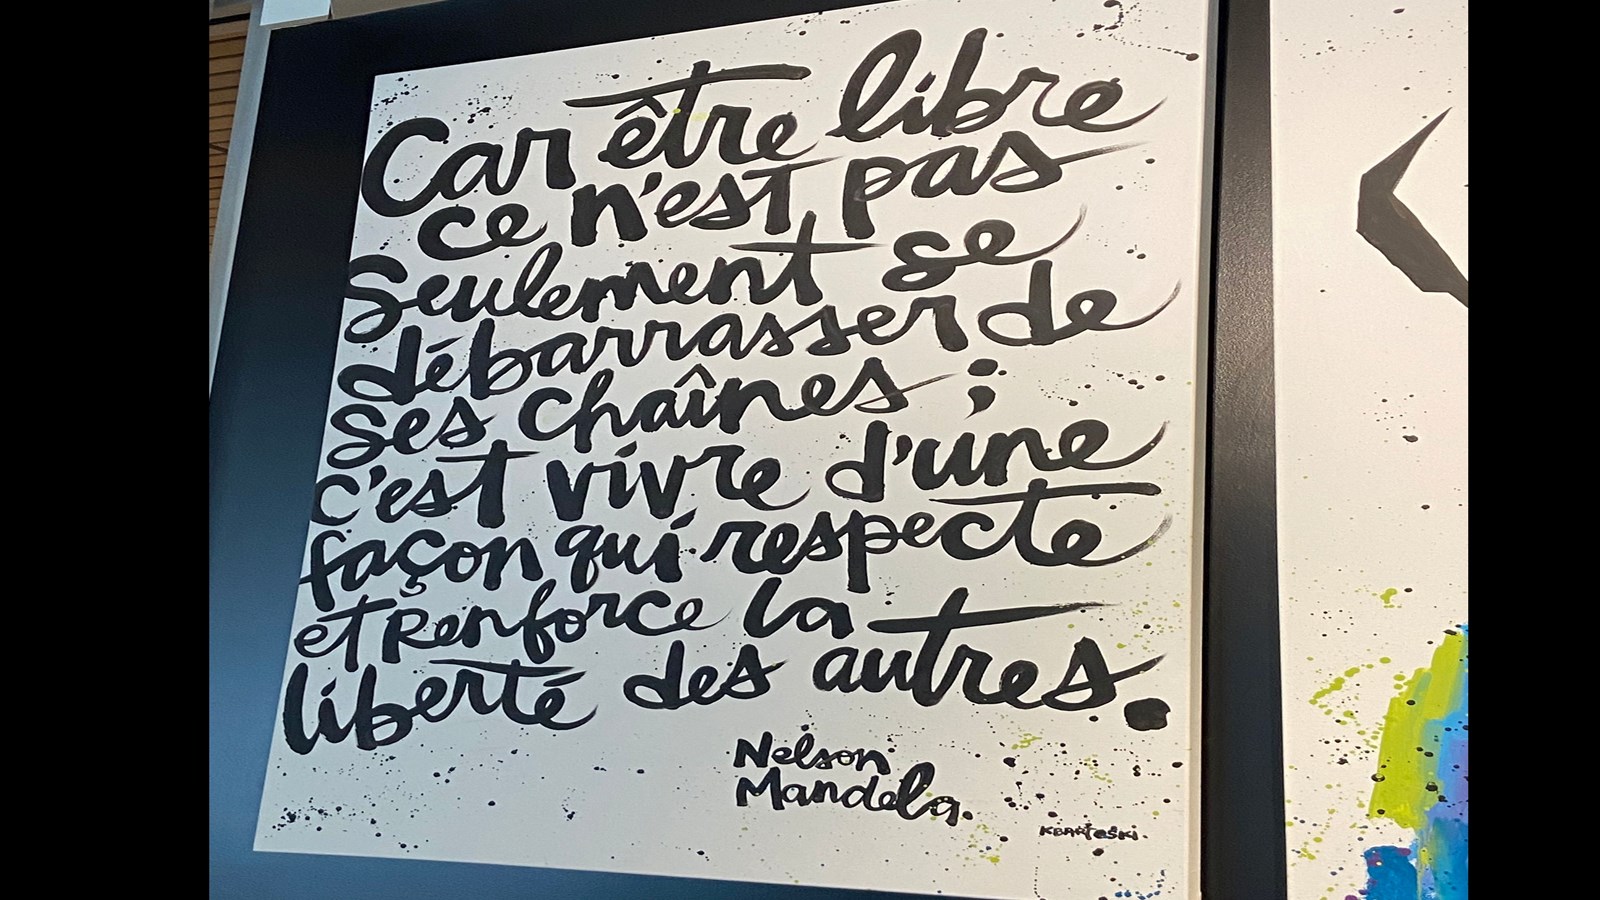 Car être libre
ce n'est pas
Seulement se
débarrasser de
ses chaînes ;
c'est vivre d'une
façon qui respecte
et Renforce la
liberté des autres.
Nelson
Mandela.